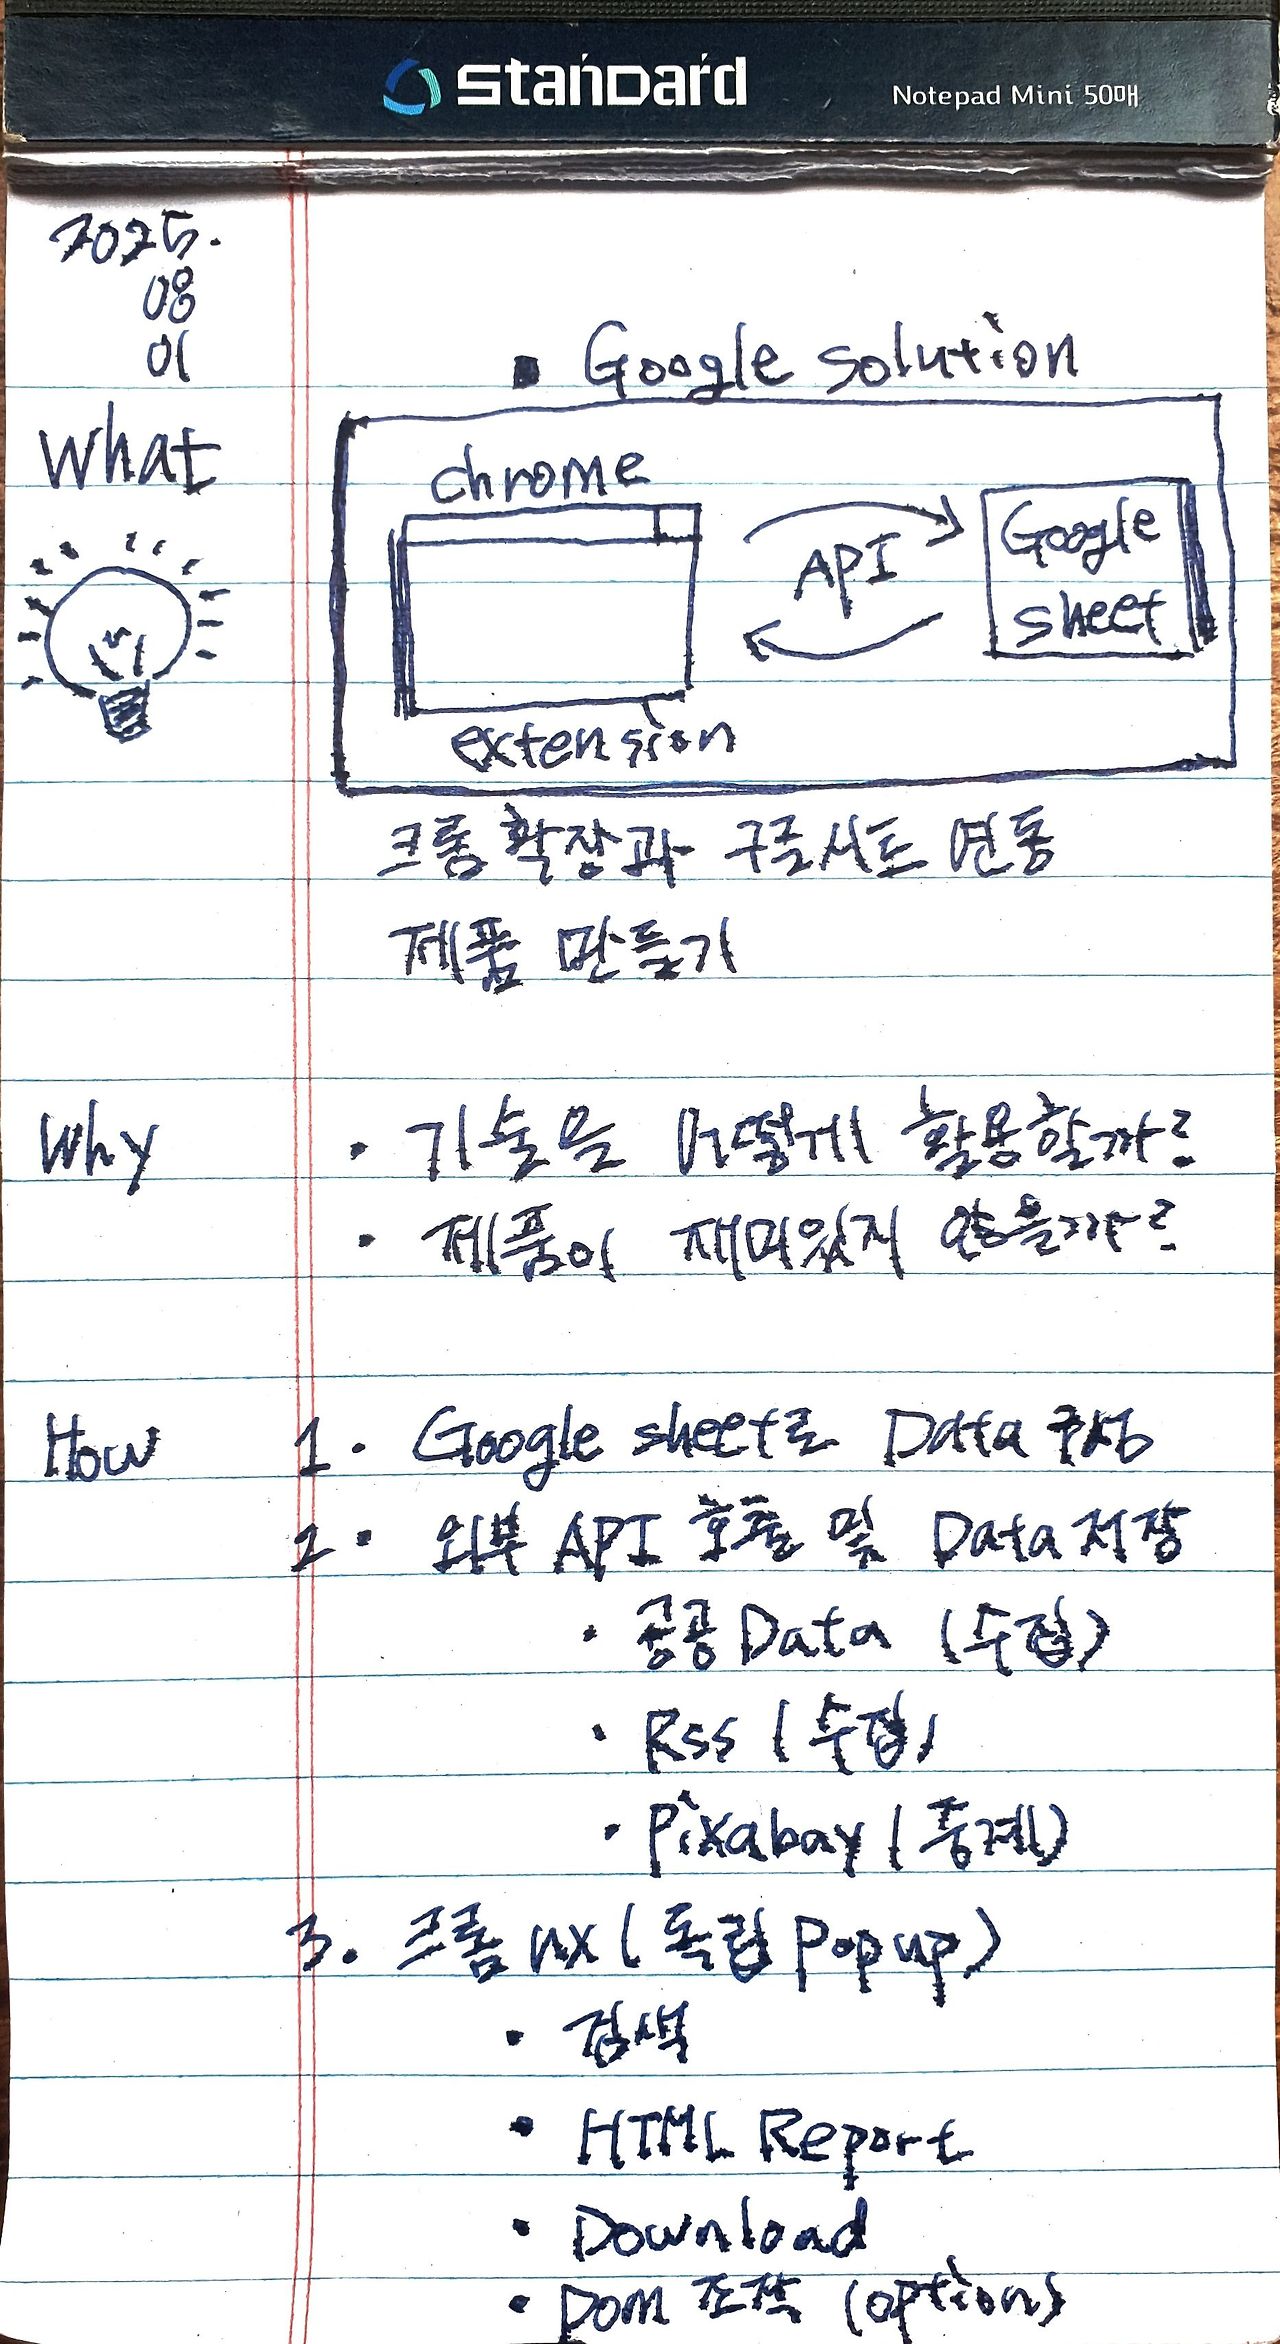 standard
Notepad Mini 50매
2025.
08
01
What
▪ Google solution
chrome
API
Google
sheet
extension
크롬 확장과 구글시트 연동
제품 만들기
Why
· 기술을 어떻게 활용할까?
· 제품이 재미있지 않을까?
How
1. Google sheet로 Data 구성
2. 외부 API 호출 및 Data 저장
· 공공 Data (수집)
· Rss (수집)
· Pixabay (중계)
3. 크롬 ux (독립 Popup)
· 검색
· HTML Report
· Download
· DOM 조작 (option)